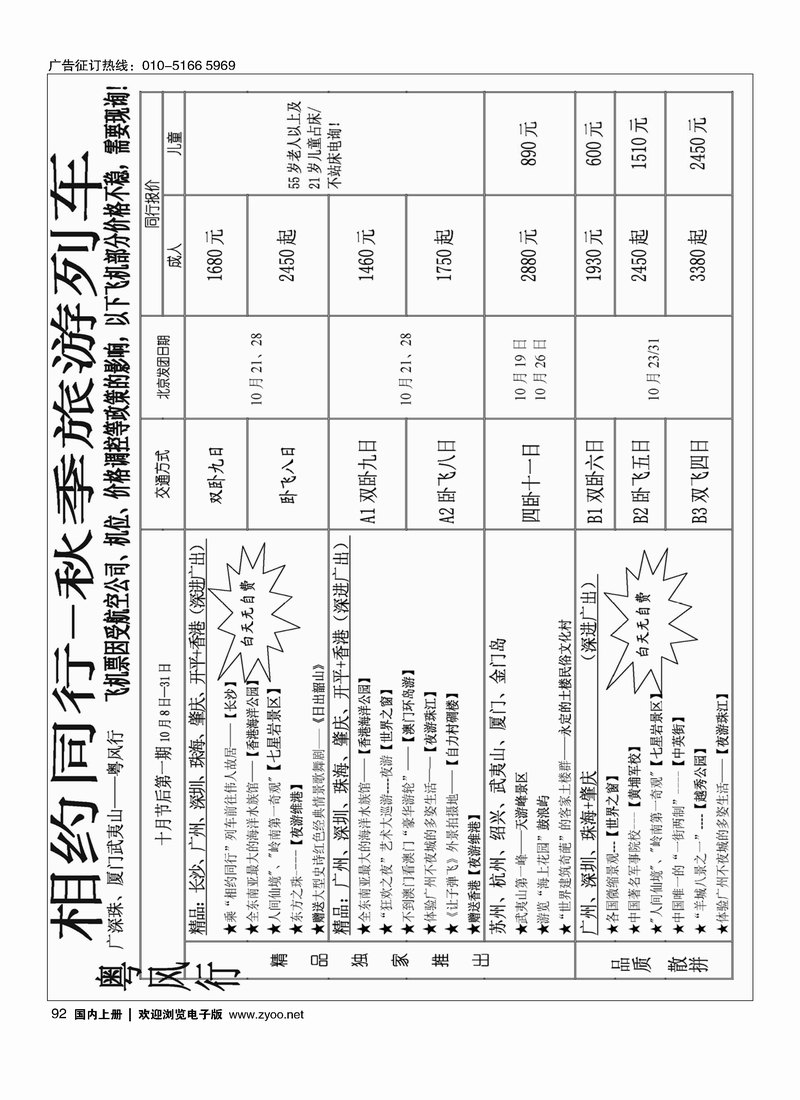 广告征订热线：010-5166 5969
相约同行-秋季旅游列车
广深珠、厦门武夷山——粤风行
飞机票因受航空公司、机位、价格调控等政策的影响，以下飞机部分价格不稳，需要现询!
粤风行
十月节后第一期10月8日—31日
交通方式
北京发团日期
同行报价
成人
儿童
精品独家推出
精品：长沙、广州、深圳、珠海、肇庆、开平+香港（深进广出）
★乘“相约同行”列车前往伟人故居——【长沙】
★全东南亚最大的海洋水族馆——【香港海洋公园】
★“人间仙境”、“岭南第一奇观”【七星岩景区】
★东方之珠----【夜游维港】
★赠送大型史诗红色经典情景歌舞剧——《日出韶山》
白天无自费
双卧九日
卧飞八日
10月21、28
1680元
2450起
55岁老人以上及
21岁儿童占床/
不站床电询!
精品：广州、深圳、珠海、肇庆、开平+香港（深进广出）
★全东南亚最大的海洋水族馆——【香港海洋公园】
★“狂欢之夜”艺术大巡游---夜游【世界之窗】
★不到澳门看澳门“豪华游轮”——【澳门环岛游】
★体验广州不夜城的多姿生活——【夜游珠江】
★《让子弹飞》外景拍摄地——【自力村碉楼】
★赠送香港【夜游维港】
A1双卧九日
A2卧飞八日
10月21、28
1460元
1750起
苏州、杭州、绍兴、武夷山、厦门、金门岛
★武夷山第一峰——天游峰景区
★游览“海上花园”鼓浪屿
★“世界建筑奇葩”的客家土楼群——永定的土楼民俗文化村
四卧十一日
10月19日
10月26日
2880元
890元
品质散拼
广州、深圳、珠海+肇庆（深进广出）
★各国微缩景观---【世界之窗】
★中国著名军事院校----【黄埔军校】
★“人间仙境”、“岭南第一奇观”【七星岩景区】
★中国唯一的“一街两制”----【中英街】
★“羊城八景之一”----【越秀公园】
★体验广州不夜城的多姿生活——【夜游珠江】
白天无自费
B1双卧六日
B2卧飞五日
B3双飞四日
10月23/31
1930元
600元
2450起
1510元
3380起
2450元
92 国内上册 | 欢迎浏览电子版 www.zyoo.net